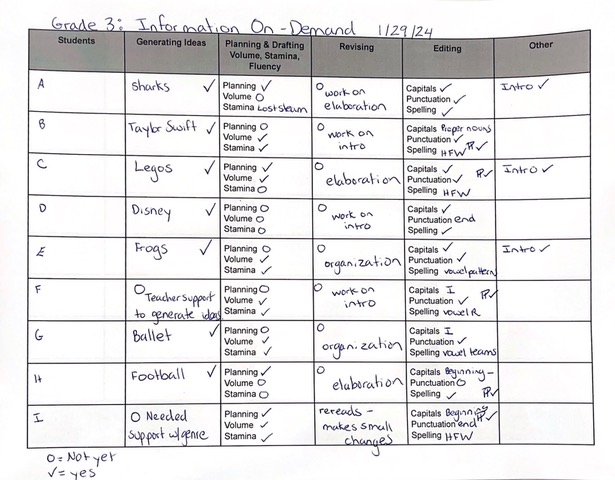 Grade 3: Information On-Demand 1/29/24
Students Generating Ideas Planning & Drafting Volume, Stamina, Fluency Revising Editing Other
A sharks ✓ Planning ✓ O work on Capitals ✓ Intro ✓
Volume O elaboration Punctuation ✓
Stamina Lost steam Spelling ✓
B Taylor Swift ✓ Planning O O work on Capitals Proper nouns
Volume ✓ intro Punctuation ✓
Stamina ✓ Spelling HFW
C Legos ✓ Planning ✓ O elaboration Capitals ✓ Intro ✓
Volume ✓ Punctuation ✓
Stamina O Spelling HFW
D Disney ✓ Planning O O work on Capitals ✓
Volume O intro Punctuation end
Stamina O Spelling ✓
E Frogs ✓ Planning O O organization Capitals ✓ Intro ✓
Volume ✓ Punctuation ✓
Stamina ✓ Spelling vowel pattern
F O Teacher support Planning O O work on Capitals I
to generate ideas Volume ✓ intro Punctuation ✓
Stamina ✓ Spelling vowel R
G Ballet ✓ Planning O O organization Capitals I
Volume ✓ Punctuation ✓
Stamina ✓ Spelling vowel teams
H Football ✓ Planning O O elaboration Capitals Beginning-
Volume O Punctuation O
Stamina O Spelling ✓
I O Needed Planning ✓ rereads - Capitals Beginning
support w/genre Volume ✓ makes small Punctuation end
Stamina ✓ changes Spelling HFW
O = Not yet
✓ = yes